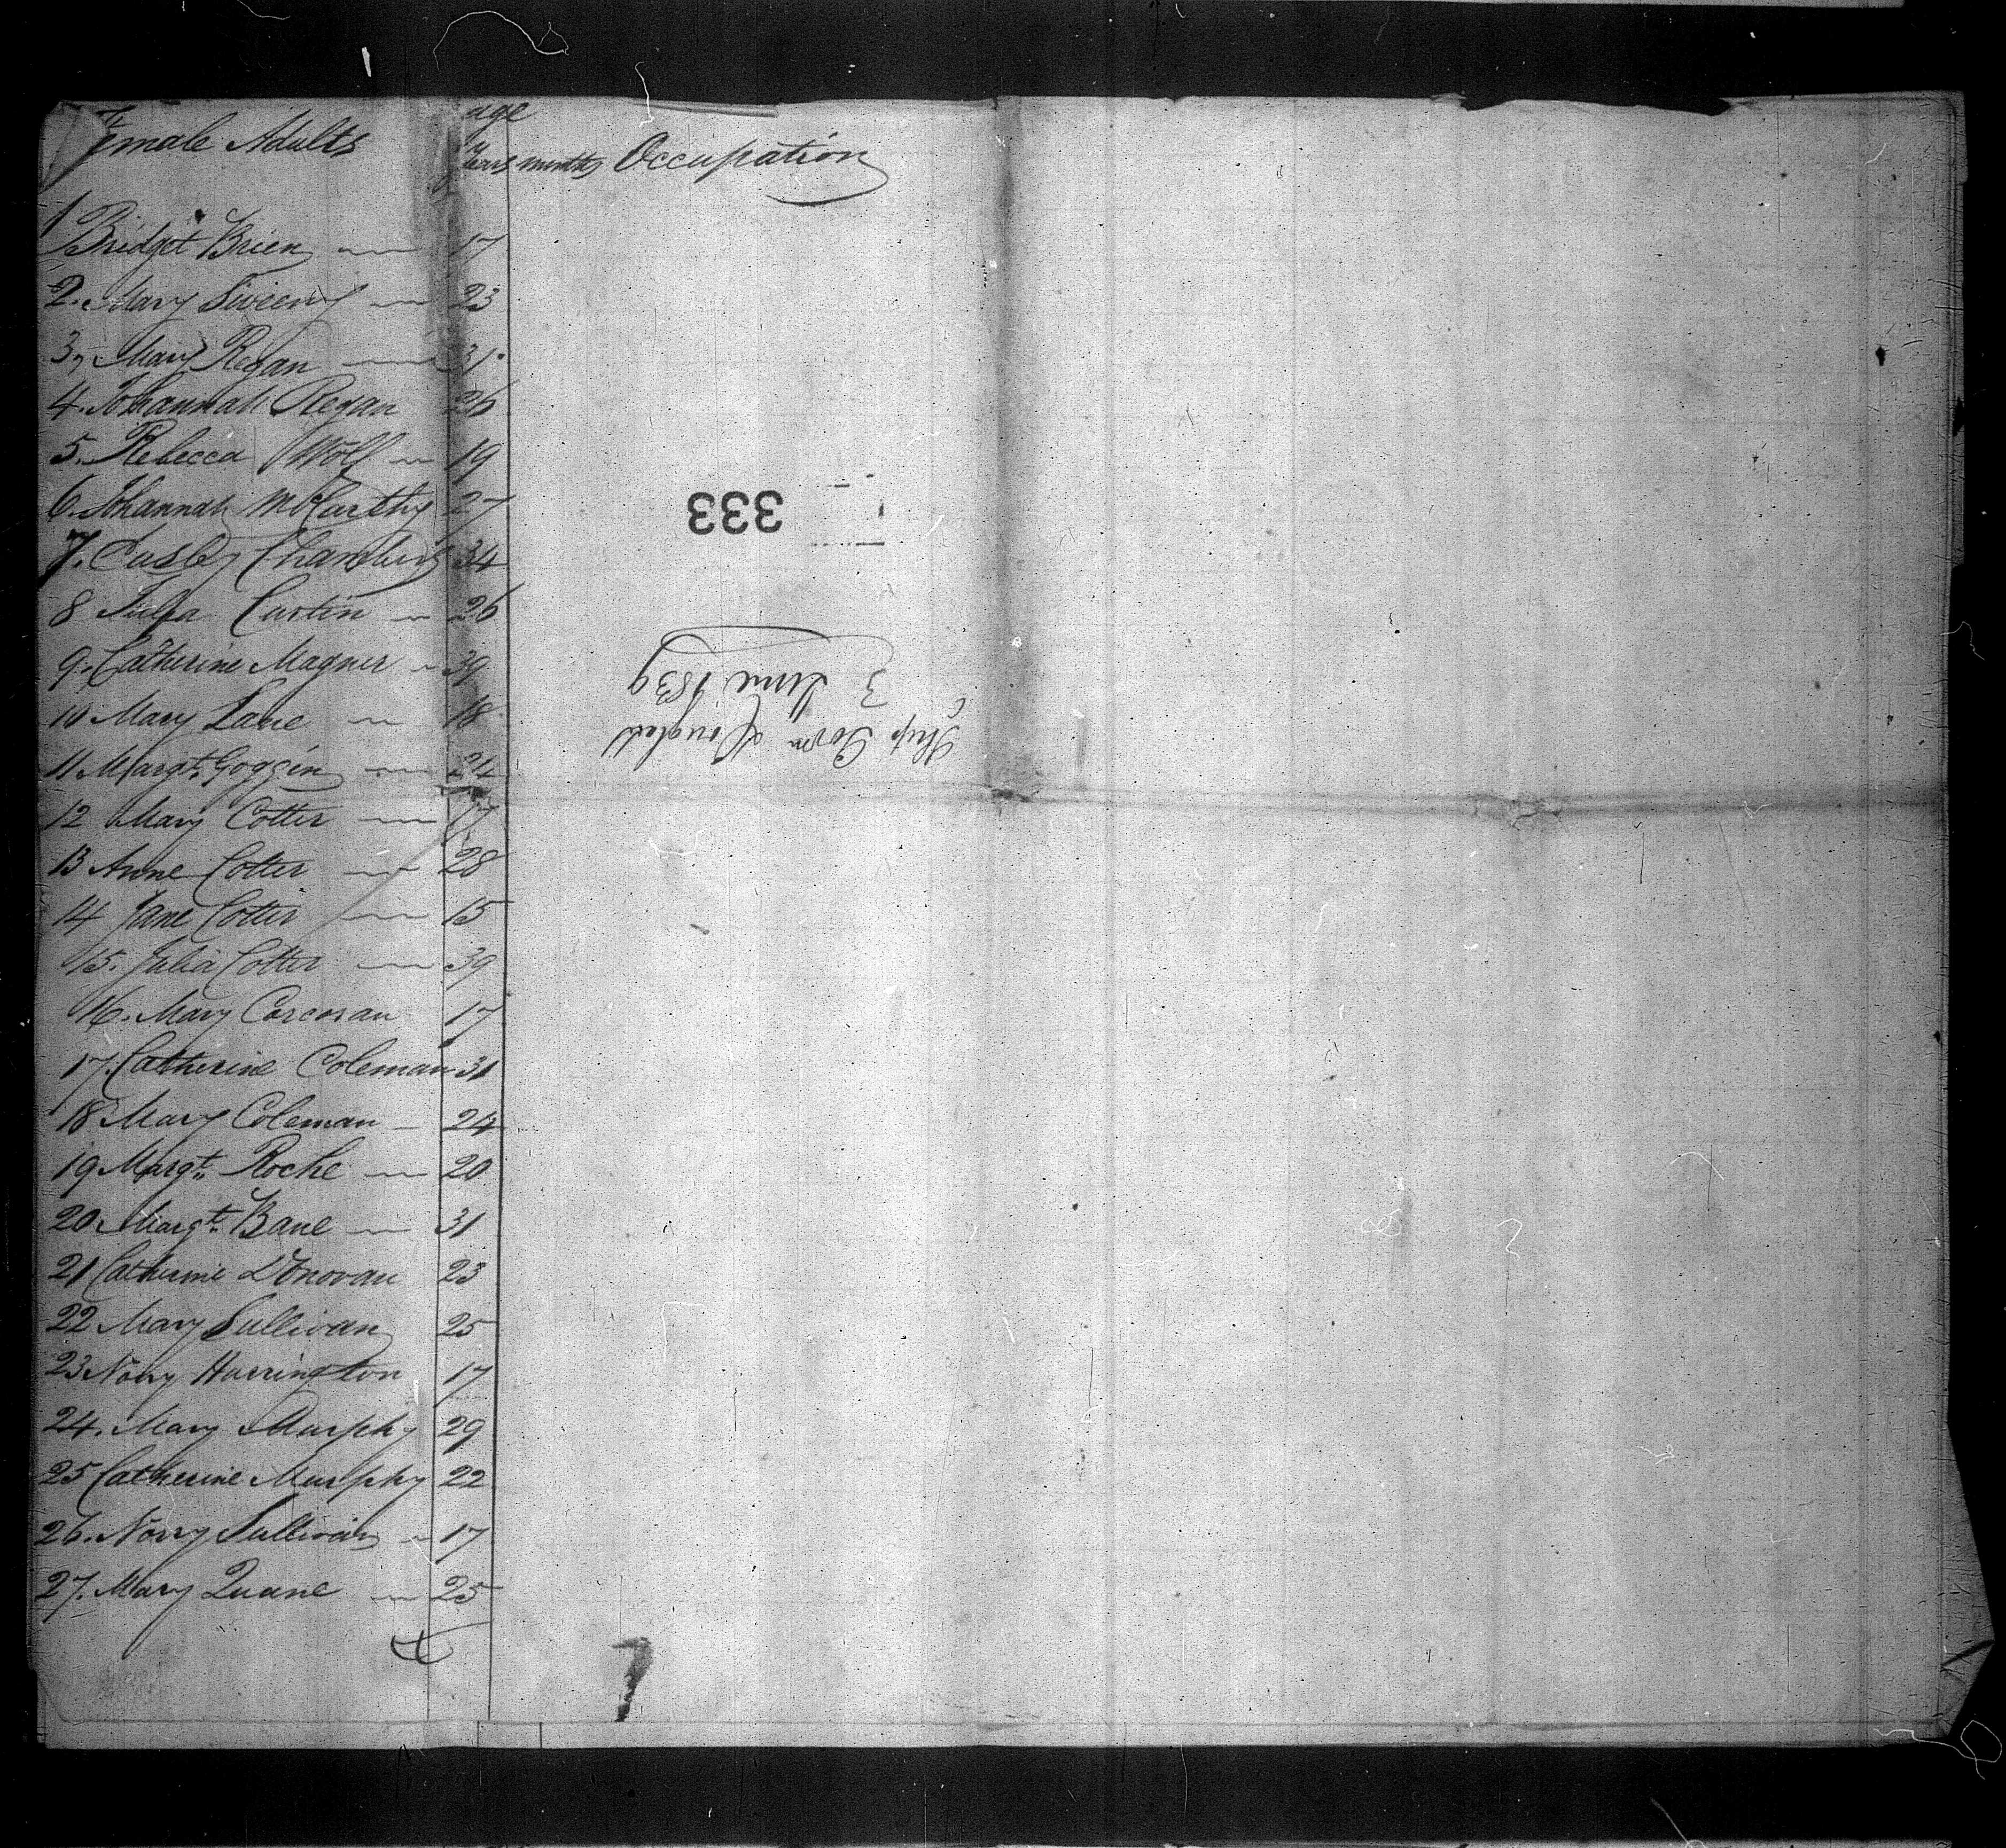 age
Female Adults years months Occupation
1 Bridget Brien 17
2. Mary Sweeny 23
3, Mary Regan 31
4. Johannah Regan 26
5. Rebecca Wolf 19
6. Johannah McCarthy 27
7. Chambers 34
8 Julia Curtin 26
9. Catherine Magner 39
10 Mary Lane 18
11 Margt. Goggin 24
12 Mary Cotter 17
13 Anne Cotter 28
14 Jane Cotter 15
15. Julia Cotter 39
16. Mary Corcoran 17
17. Catherine Coleman 31
18 Mary Coleman 24
19 Margt. Roche 20
20. Margt. Bane 31
21 Catherine Donovan 23
22 Mary Sullivan 25
23 Norry Harrington 17
24. Mary Murphy 29
25 Catherine Murphy 22
26. Norry Sullivan 17
27. Mary Quane 25
333
Ship Govn Douglas
3 June 1839
7